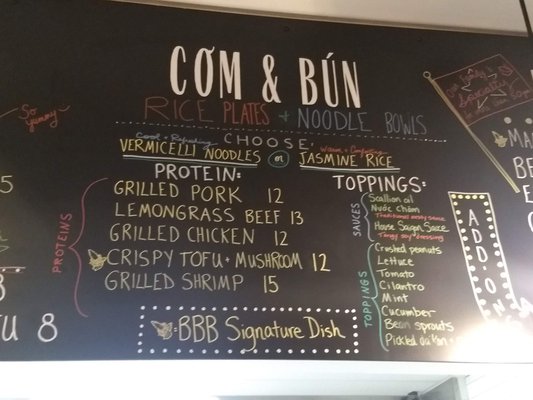 CƠM & BÚN
RICE PLATES + NOODLE BOWLS
So
yummy
CHOOSE
Cool + Refreshing
VERMICELLI NOODLES or JASMINE RICE
Warm + Comforting
PROTEIN:
PROTEINS
GRILLED PORK 12
LEMONGRASS BEEF 13
GRILLED CHICKEN 12
CRISPY TOFU + MUSHROOM 12
GRILLED SHRIMP 15
= BBB Signature Dish
TOPPINGS:
SAUCES
Scallion oil
Nước Chấm
House Saigon Sauce
Tangy soy dressing
TOPPINGS
Crushed peanuts
Lettuce
Tomato
Cilantro
Mint
Cucumber
Bean sprouts
Pickled
ADD-ON
5
8
TU 8